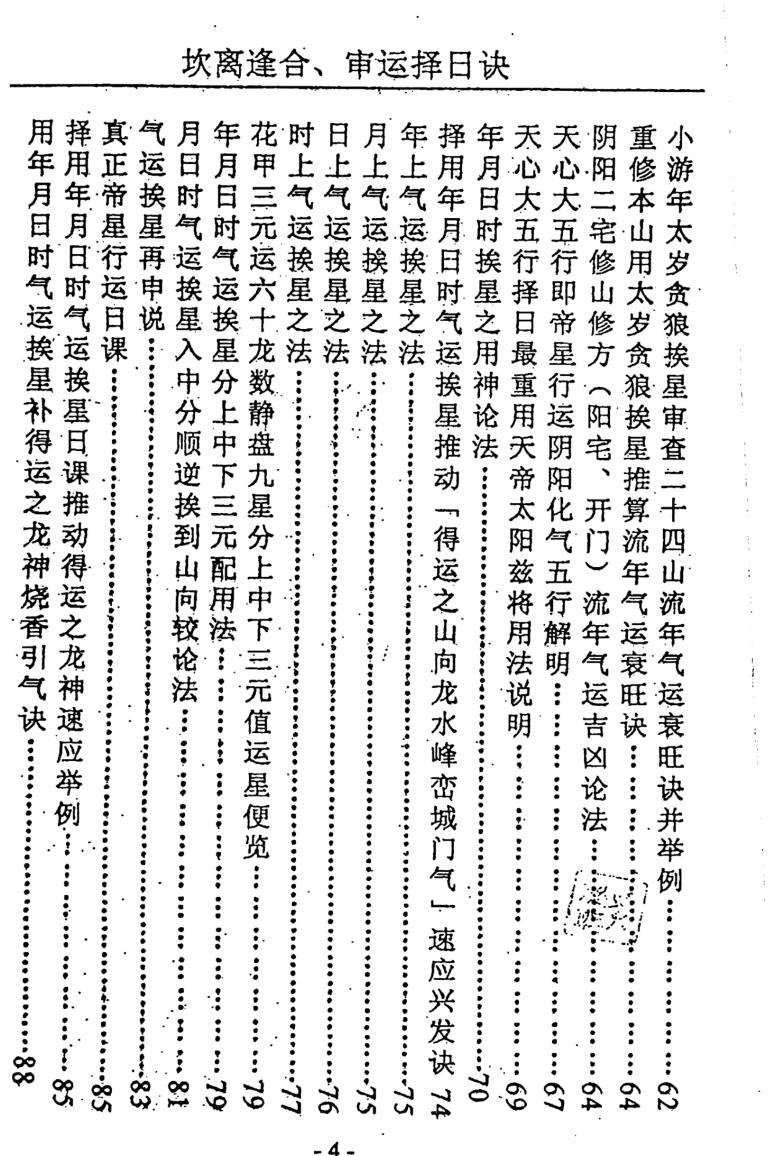 坎离逢合、审运择日诀
小游年太岁贪狼挨星审查二十四山流年气运衰旺诀并举例……62
重修本山用太岁贪狼挨星推算流年气运衰旺诀……64
阴阳二宅修山修方（阳宅、开门）流年气运吉凶论法……64
天心大五行即帝星行运阴阳化气五行解明……67
天心太五行择日最重用天帝太阳兹将用法说明……69
年月日时挨星之用神论法……70
择用年月日时气运挨星推动「得运之山向龙水峰峦城门气」速应兴发诀 74
年上气运挨星之法……75
月上气运挨星之法……75
日上气运挨星之法……76
时上气运挨星之法……77
花甲三元运六十龙数静盘九星分上中下三元值运星便览……79
年月日时气运挨星分上中下三元配用法……79
月日时气运挨星入中分顺逆挨到山向较论法……81
气运挨星再申说……83
真正帝星行运日课……85
择用年月日时气运挨星日课推动得运之龙神速应举例……85
用年月日时气运挨星补得运之龙神烧香引气诀……88
- 4 -